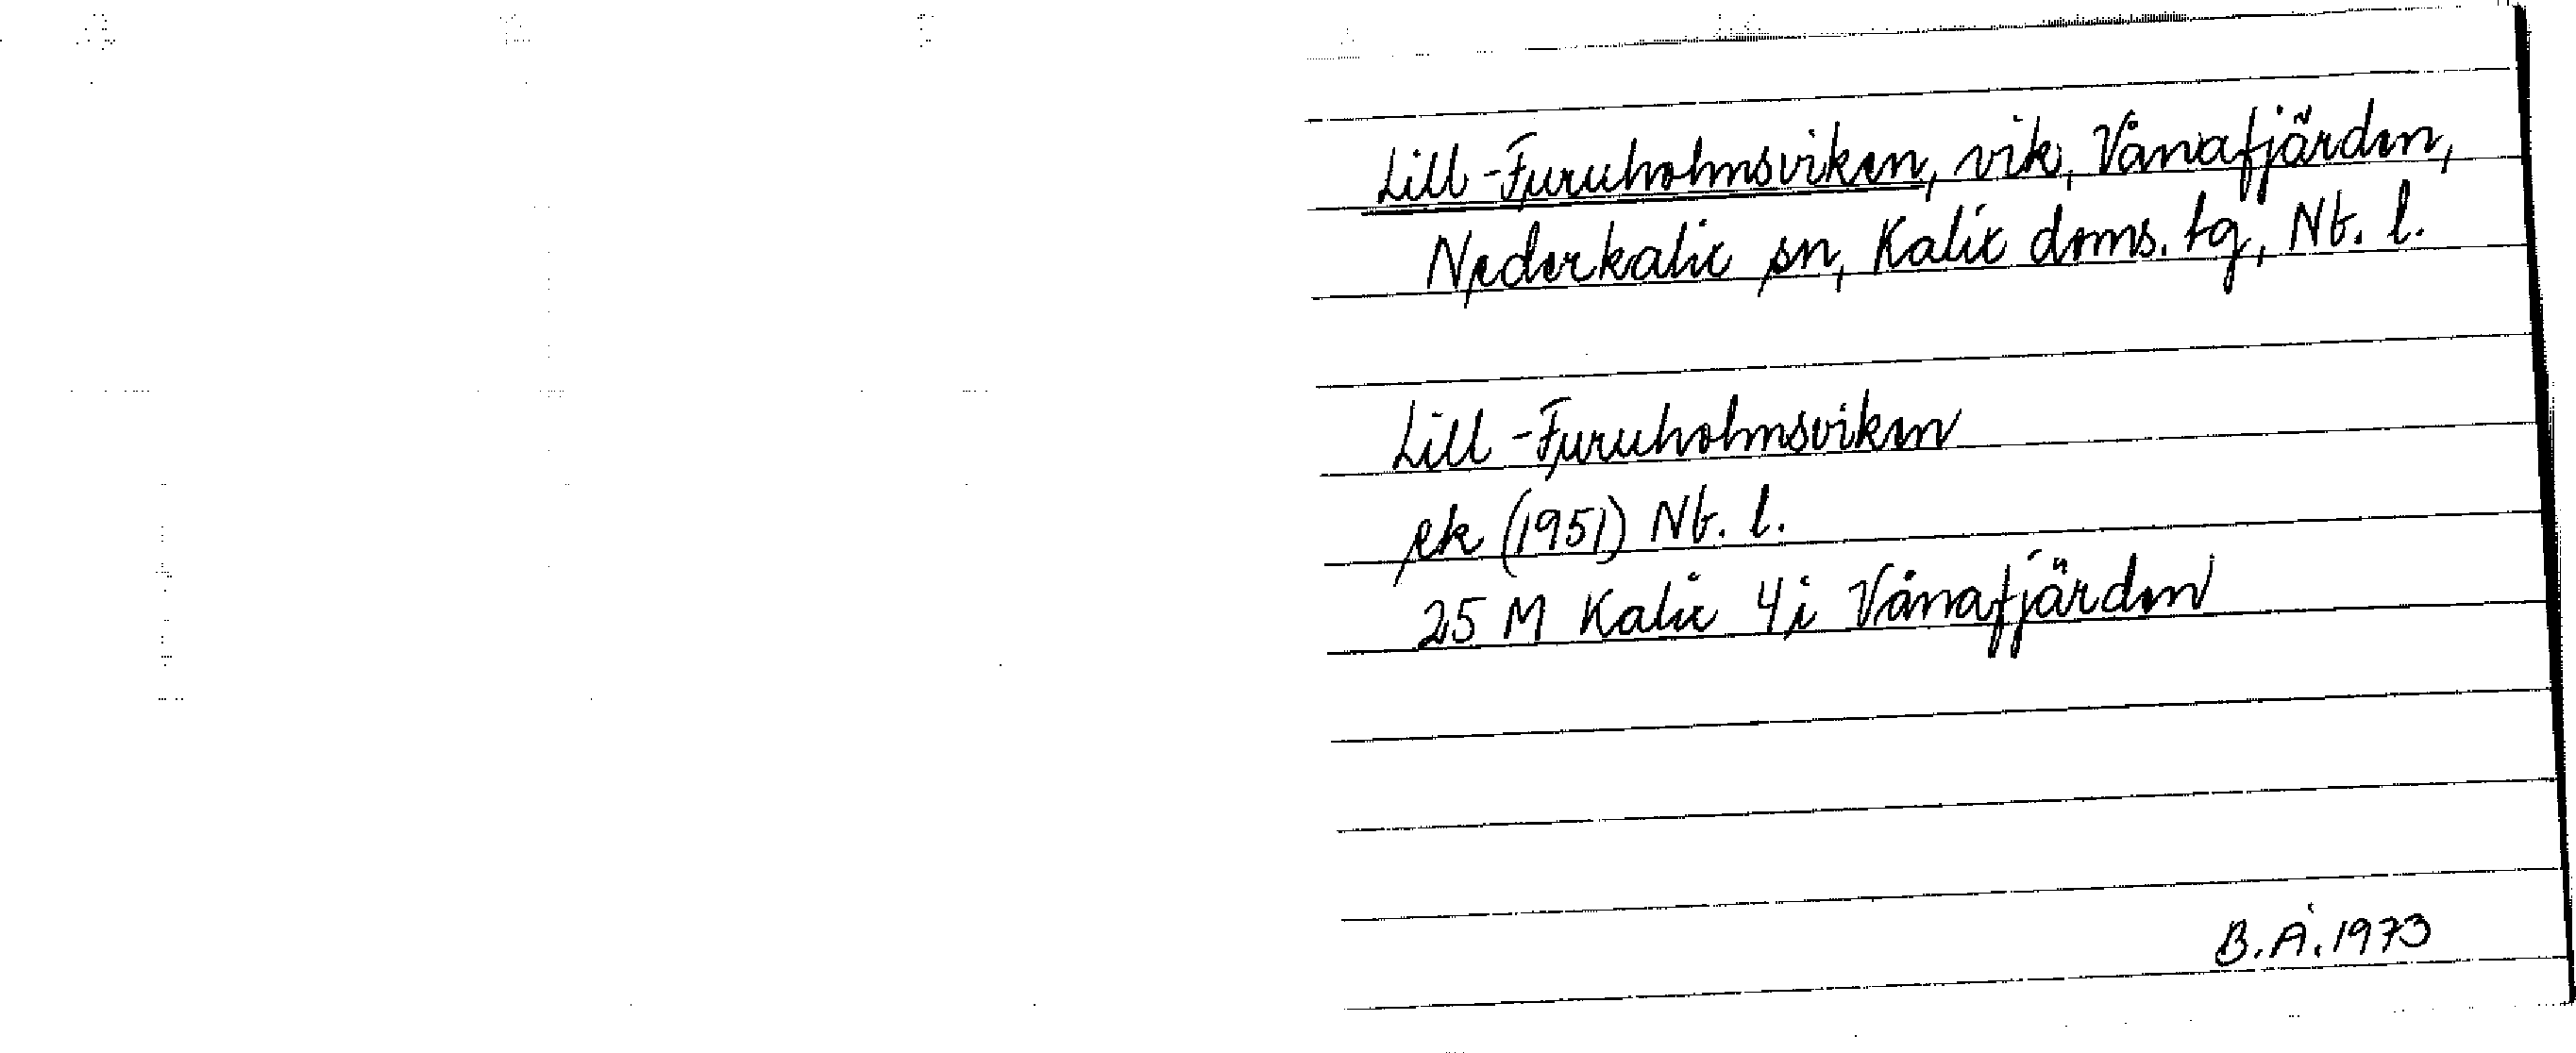 Lill-Furuholmsviken, vik, Vånafjärden,
Nederkalix sn, Kalix doms. tg, Nb. l.
Lill-Furuholmsviken
ek (1951) Nb. l.
25 M Kalix 4i Vånafjärden
B.Å. 1973